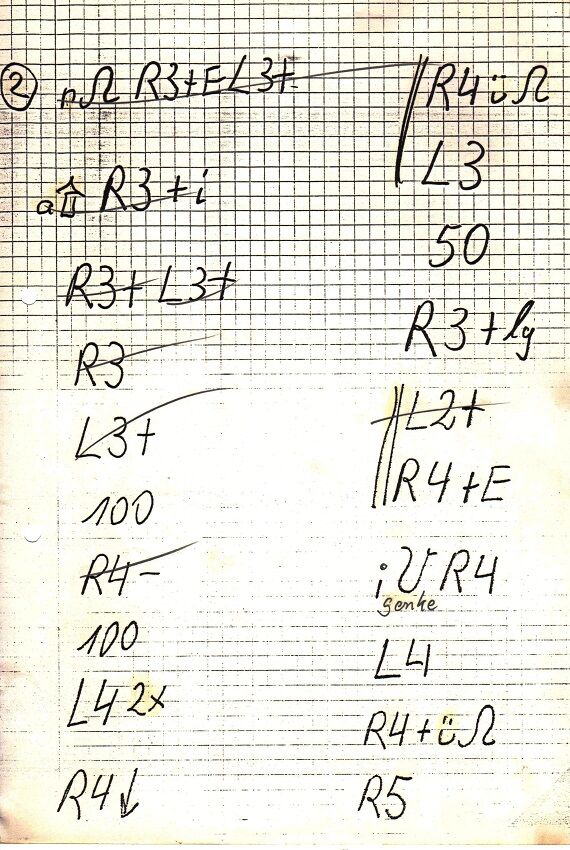 2
nΩ R3+E L3+
a⇧ R3+i
R3+ L3+
R3
L3+
100
R4-
100
L4 2x
R4↓
R4üΩ
L3
50
R3+lg
L2+
R4+E
i R4
senke
L4
R4+üΩ
R5